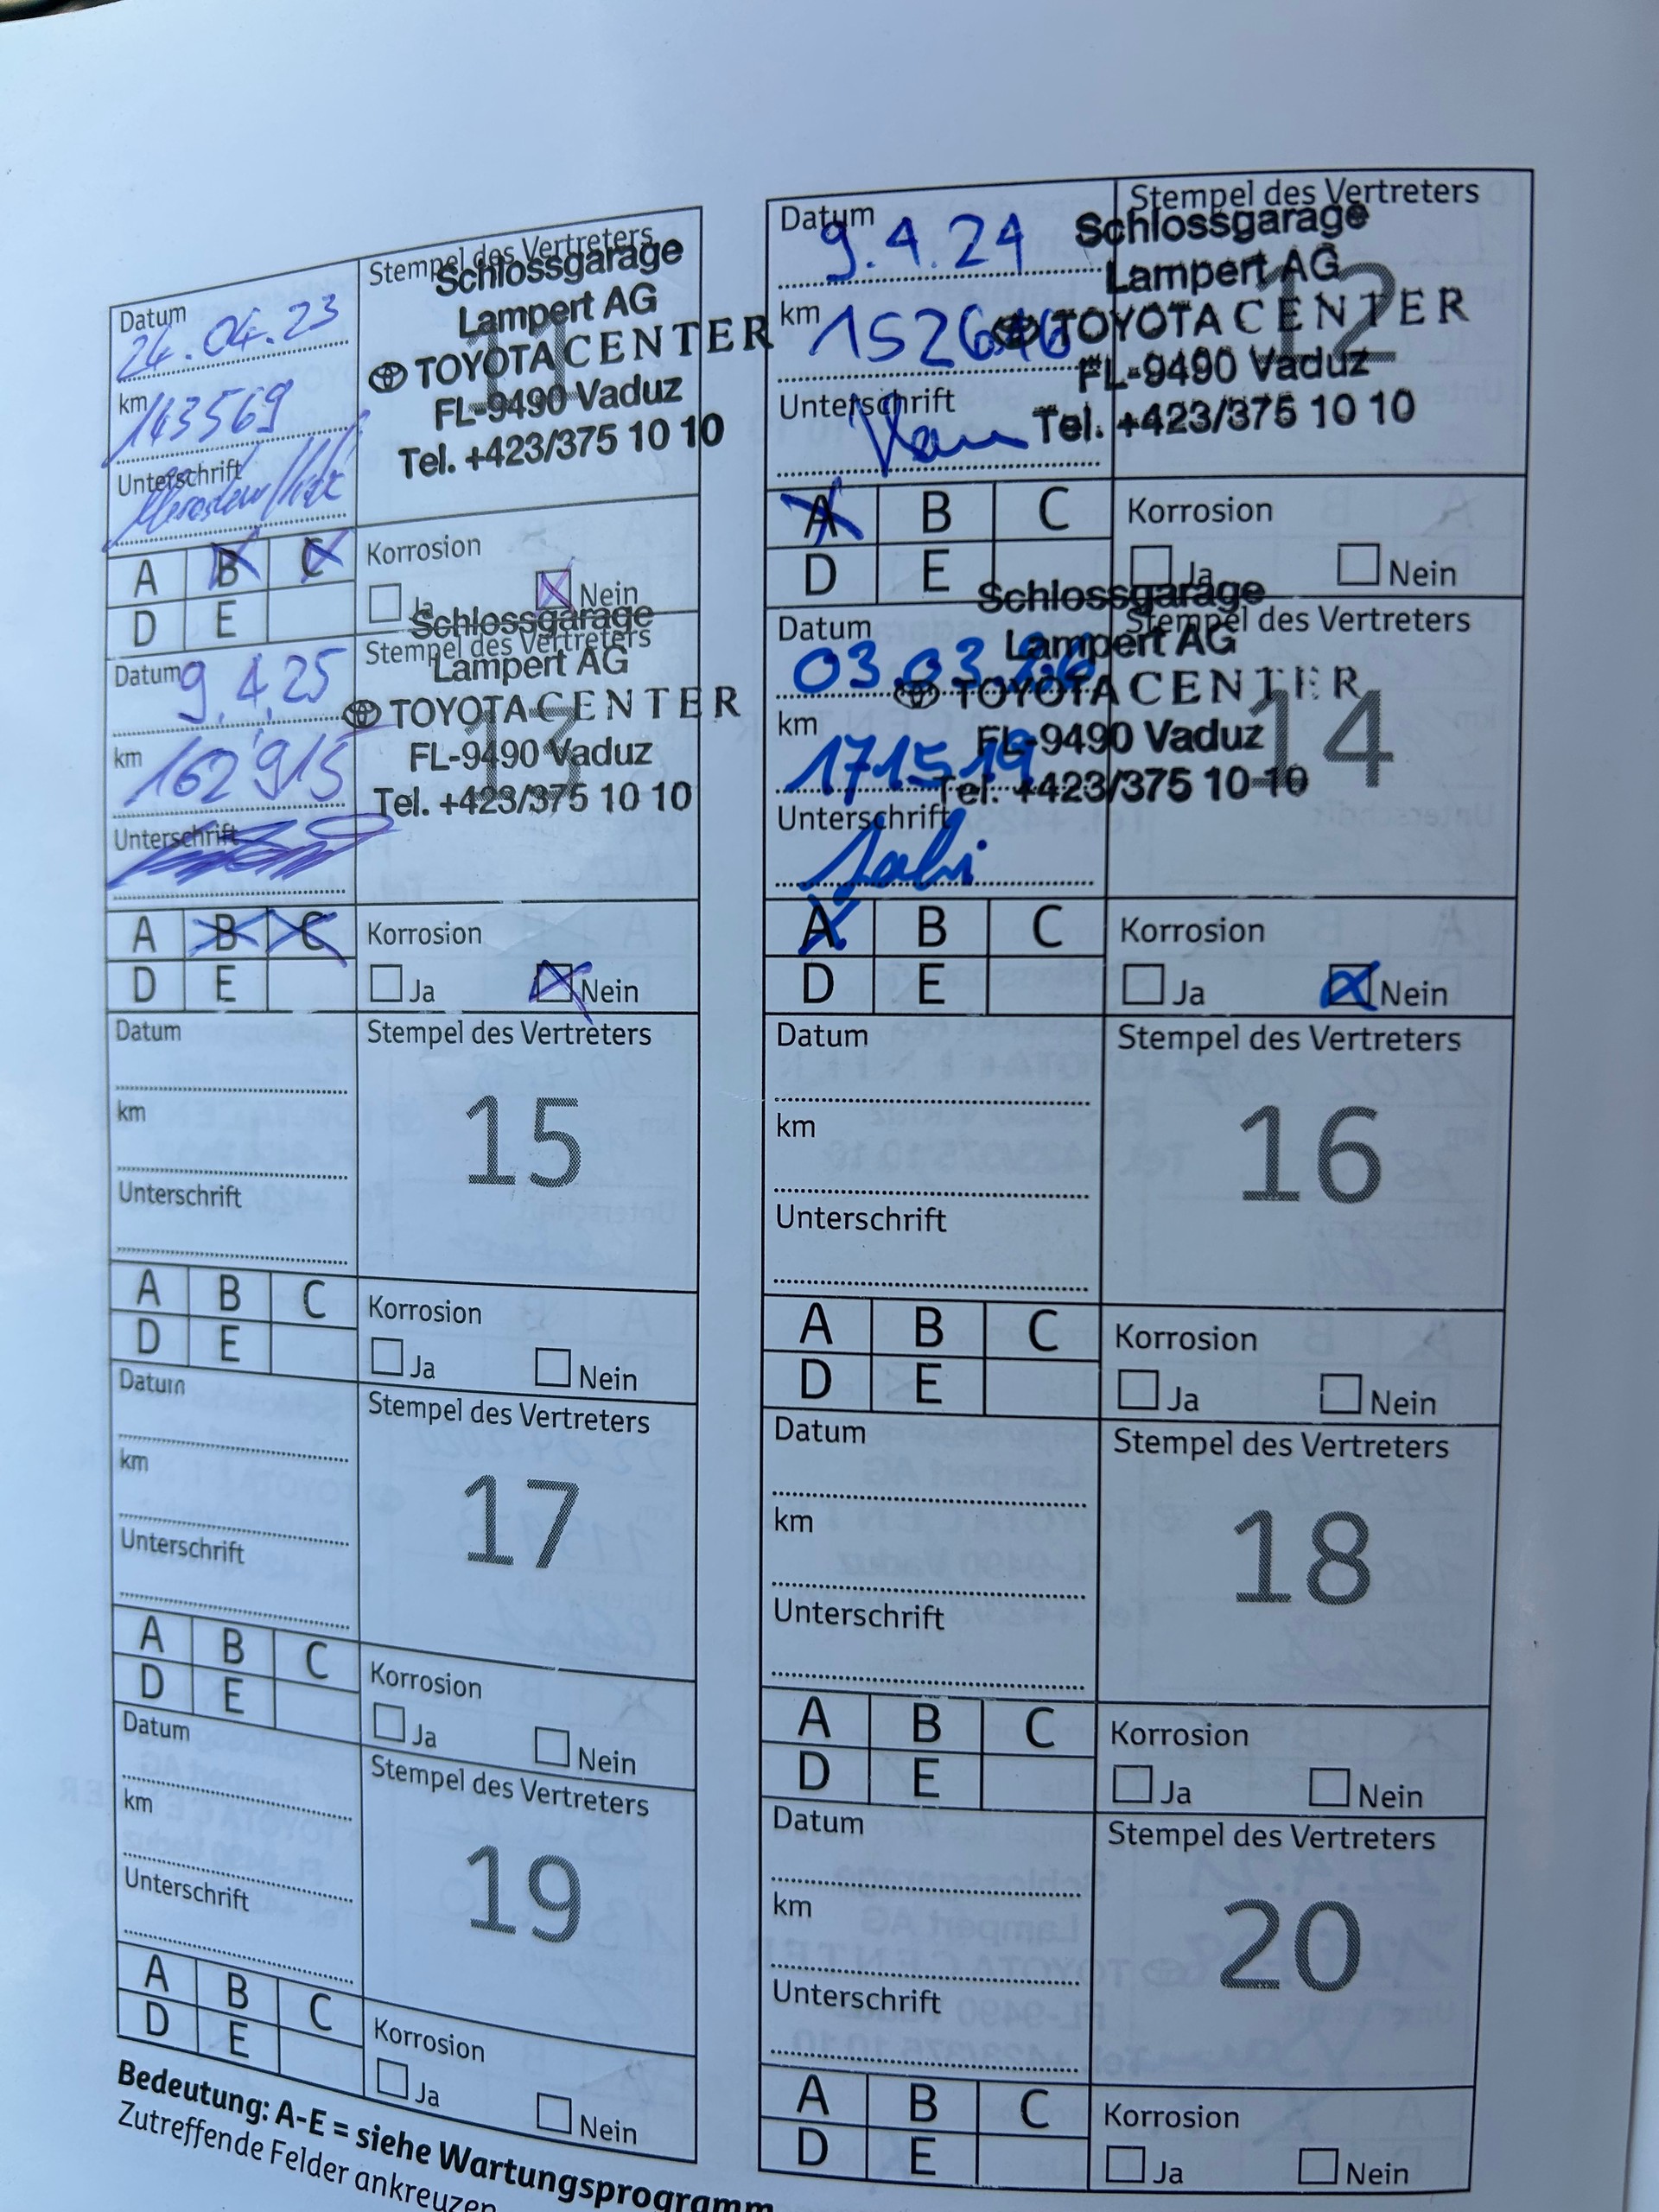 Datum
24.04.23
km
143569
Unterschrift
Stempel des Vertreters
Schlossgarage
Lampert AG
TOYOTA CENTER
FL-9490 Vaduz
Tel. +423/375 10 10
11
A B C
D E
Korrosion
Ja Nein
Datum
9.4.24
km
Unterschrift
Stempel des Vertreters
Schlossgarage
Lampert AG
TOYOTA CENTER
FL-9490 Vaduz
Tel. +423/375 10 10
12
A B C
D E
Korrosion
Ja Nein
Datum
9.4.25
km
162'915
Unterschrift
Stempel des Vertreters
Schlossgarage
Lampert AG
TOYOTA CENTER
FL-9490 Vaduz
Tel. +423/375 10 10
13
A B C
D E
Korrosion
Ja Nein
Datum
03.03.26
km
171519
Unterschrift
Stempel des Vertreters
Schlossgarage
Lampert AG
TOYOTA CENTER
FL-9490 Vaduz
Tel. +423/375 10 10
14
A B C
D E
Korrosion
Ja Nein
Datum
km
Unterschrift
Stempel des Vertreters
15
A B C
D E
Korrosion
Ja Nein
Datum
km
Unterschrift
Stempel des Vertreters
16
A B C
D E
Korrosion
Ja Nein
Datum
km
Unterschrift
Stempel des Vertreters
17
A B C
D E
Korrosion
Ja Nein
Datum
km
Unterschrift
Stempel des Vertreters
18
A B C
D E
Korrosion
Ja Nein
Datum
km
Unterschrift
Stempel des Vertreters
19
A B C
D E
Korrosion
Ja Nein
Datum
km
Unterschrift
Stempel des Vertreters
20
A B C
D E
Korrosion
Ja Nein
Bedeutung: A-E = siehe Wartungsprogramm
Zutreffende Felder ankreuzen